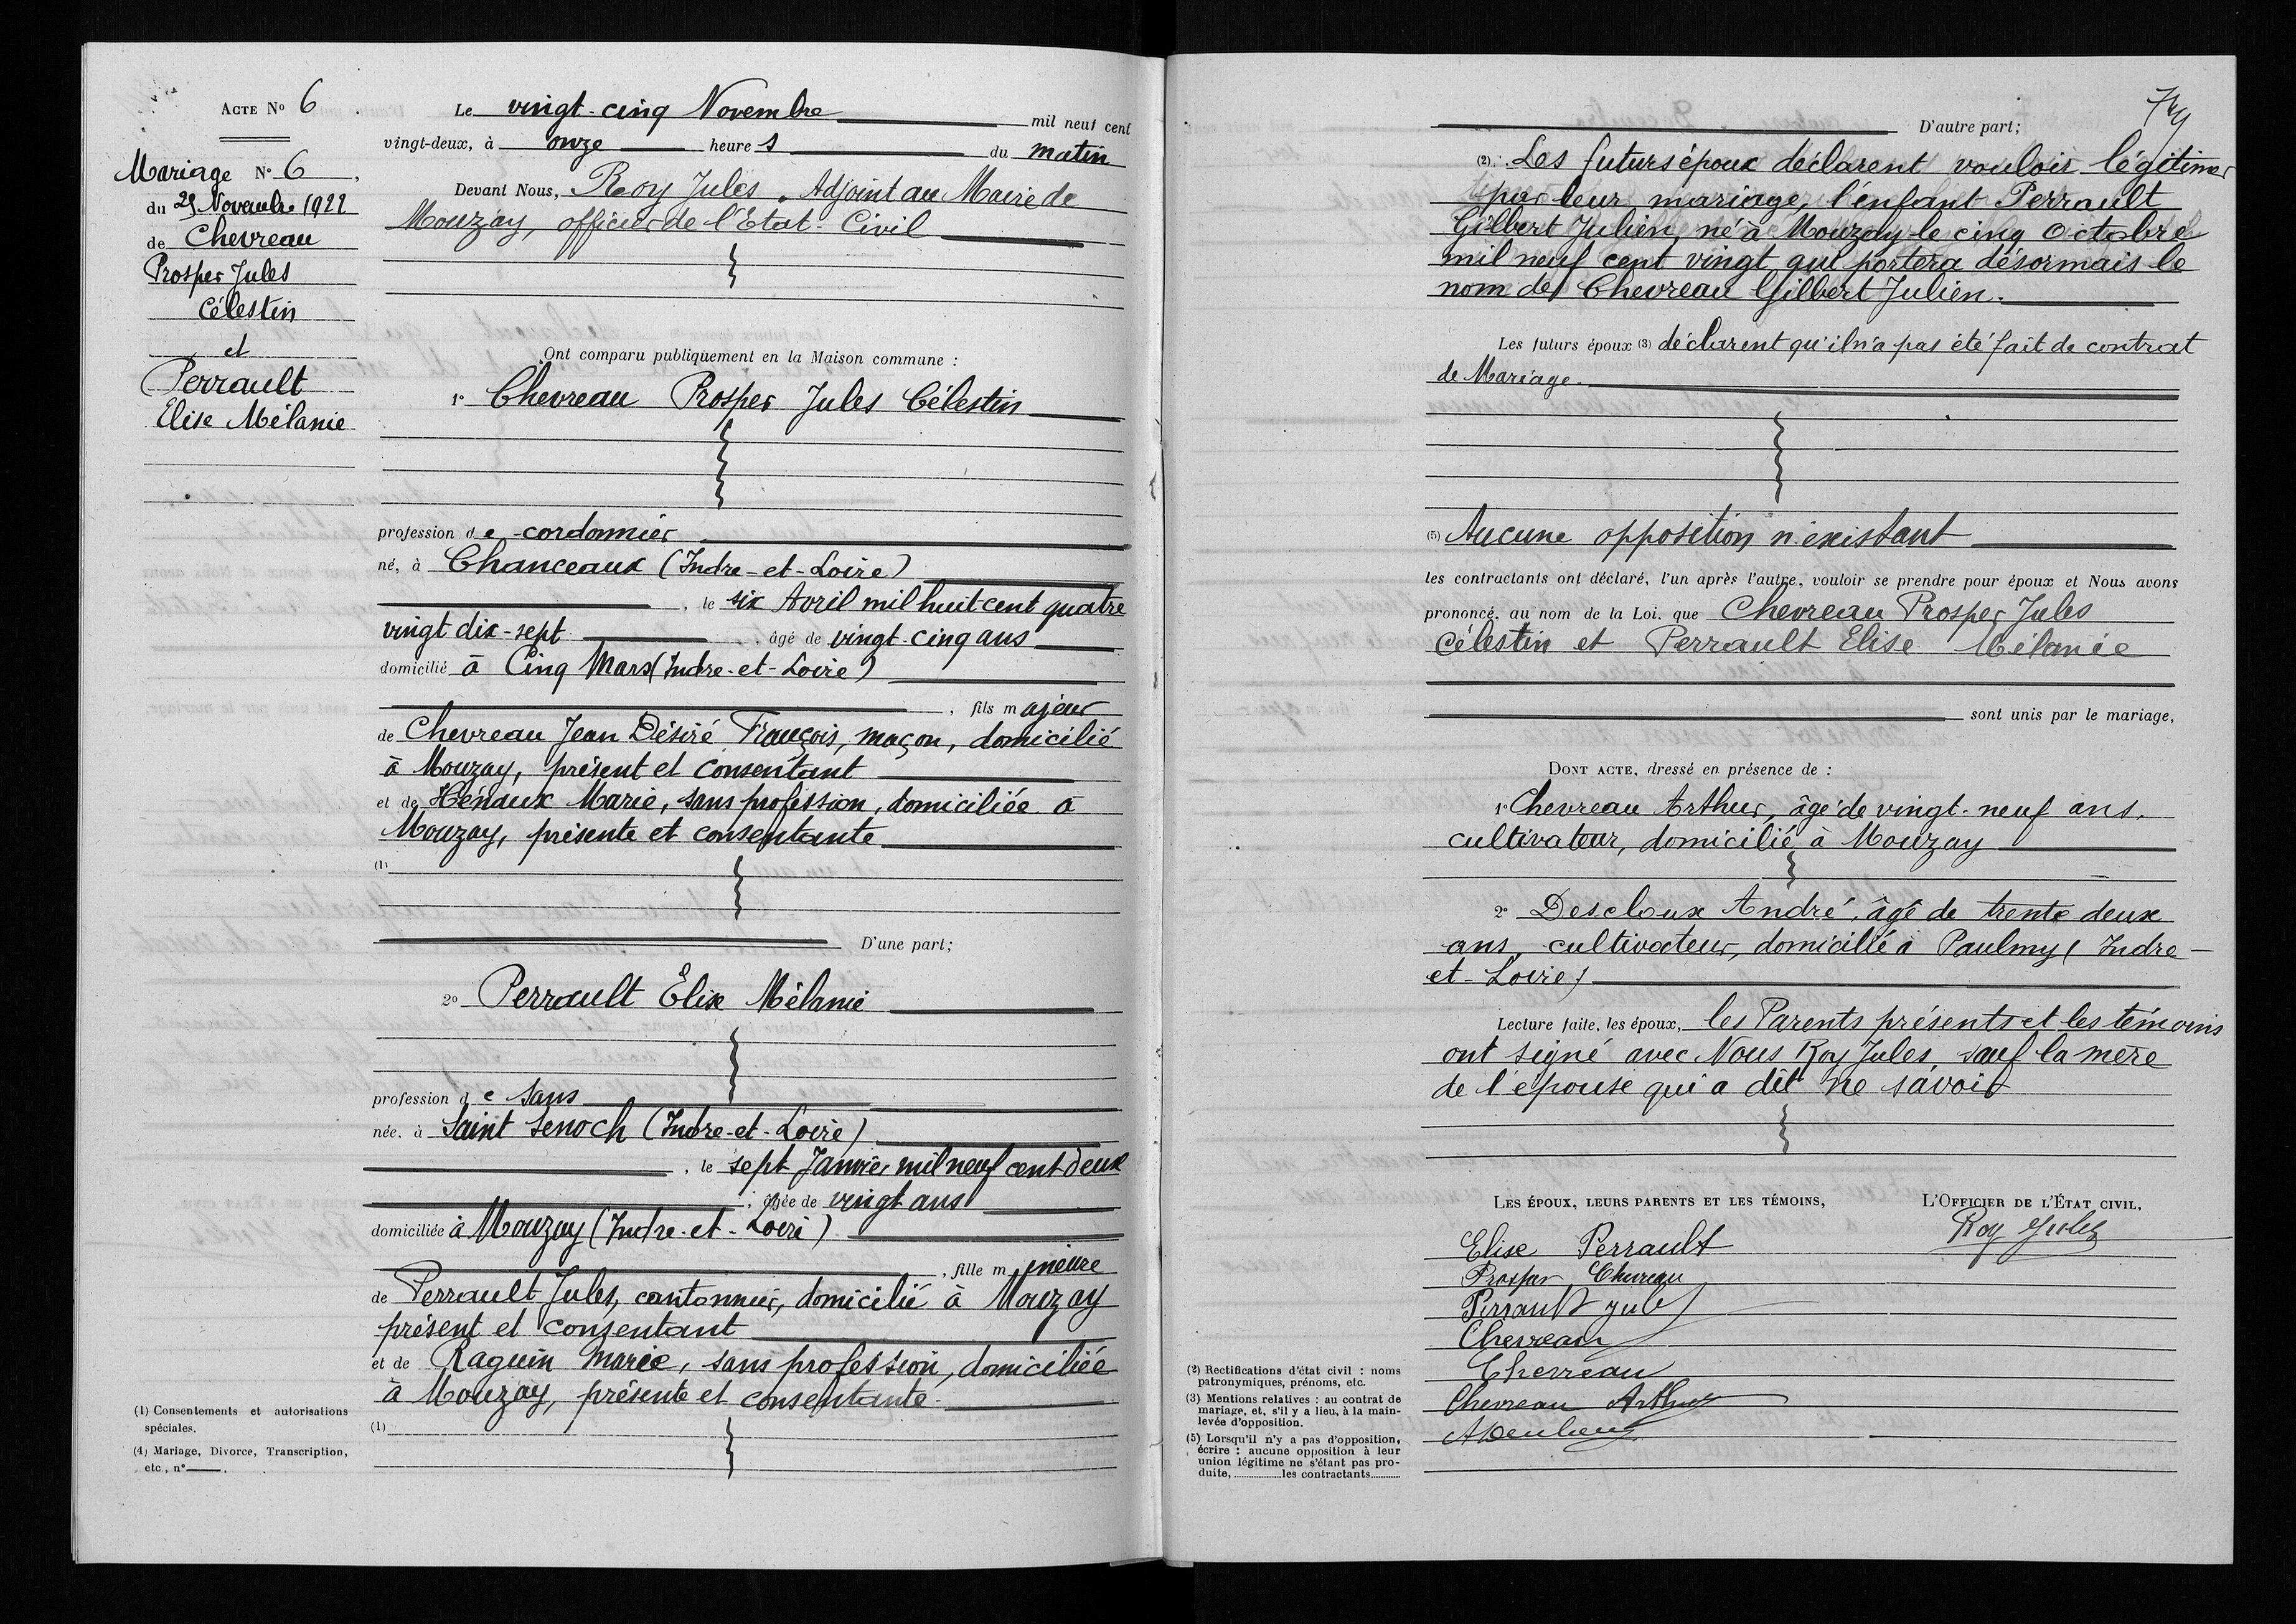 Acte No 6
Mariage No 6
du 25 Novembre 1922
de Chevreau
Prosper Jules
Célestin
et
Perrault
Elise Mélanie
Le vingt-cinq Novembre mil neuf cent
vingt-deux, à onze heures du matin
Devant Nous, Roy Jules, Adjoint au Maire de
Mouzay, officier de l'Etat-Civil
Ont comparu publiquement en la Maison commune :
1° Chevreau Prosper Jules Célestin
profession de cordonnier
né, à Chanceaux (Indre-et-Loire)
, le six Avril mil huit cent quatre
vingt dix-sept, âgé de vingt-cinq ans
domicilié à Cinq Mars (Indre-et-Loire)
, fils majeur
de Chevreau Jean Désiré François, maçon, domicilié
à Mouzay, présent et consentant
et de Hénaux Marie, sans profession, domiciliée à
Mouzay, présente et consentante
(1)
D'une part;
2° Perrault Elise Mélanie
profession de sans
née, à Saint Senoch (Indre-et-Loire)
, le sept Janvier mil neuf cent deux
, âgée de vingt ans
domiciliée à Mouzay (Indre-et-Loire)
, fille mineure
de Perrault Jules, cantonnier, domicilié à Mouzay
présent et consentant
et de Raguin Marie, sans profession, domiciliée
à Mouzay, présente et consentante.
(1)
(1) Consentements et autorisations
spéciales.
(4) Mariage, Divorce, Transcription,
etc., n° .
D'autre part;
(2) Les futurs époux déclarent vouloir légitimer
par leur mariage, l'enfant Perrault
Gilbert Julien, né à Mouzay le cinq Octobre
mil neuf cent vingt qui portera désormais le
nom de Chevreau Gilbert Julien.
Les futurs époux (3) déclarent qu'il n'a pas été fait de contrat
de Mariage.
(5) Aucune opposition n'existant
les contractants ont déclaré, l'un après l'autre, vouloir se prendre pour époux et Nous avons
prononcé, au nom de la Loi, que Chevreau Prosper Jules
Célestin et Perrault Elise Mélanie
sont unis par le mariage,
Dont acte, dressé en présence de :
1° Chevreau Arthur, âgé de vingt-neuf ans,
cultivateur, domicilié à Mouzay
2° Descloux André, âgé de trente deux
ans, cultivateur, domicilié à Paulmy (Indre-
et-Loire)
Lecture faite, les époux, les Parents présents et les témoins
ont signé avec Nous Roy Jules, sauf la mère
de l'épouse qui a dit ne savoir
Les époux, leurs parents et les témoins,
L'Officier de l'État civil,
Roy Jules
Elise Perrault
Prosper Chevreau
Perrault Jules
Chevreau
Chevreau
Chevreau Arthur
(2) Rectifications d'état civil : noms
patronymiques, prénoms, etc.
(3) Mentions relatives : au contrat de
mariage, et, s'il y a lieu, à la main-
levée d'opposition.
(5) Lorsqu'il n'y a pas d'opposition,
écrire : aucune opposition à leur
union légitime ne s'étant pas pro-
duite, ............les contractants..........